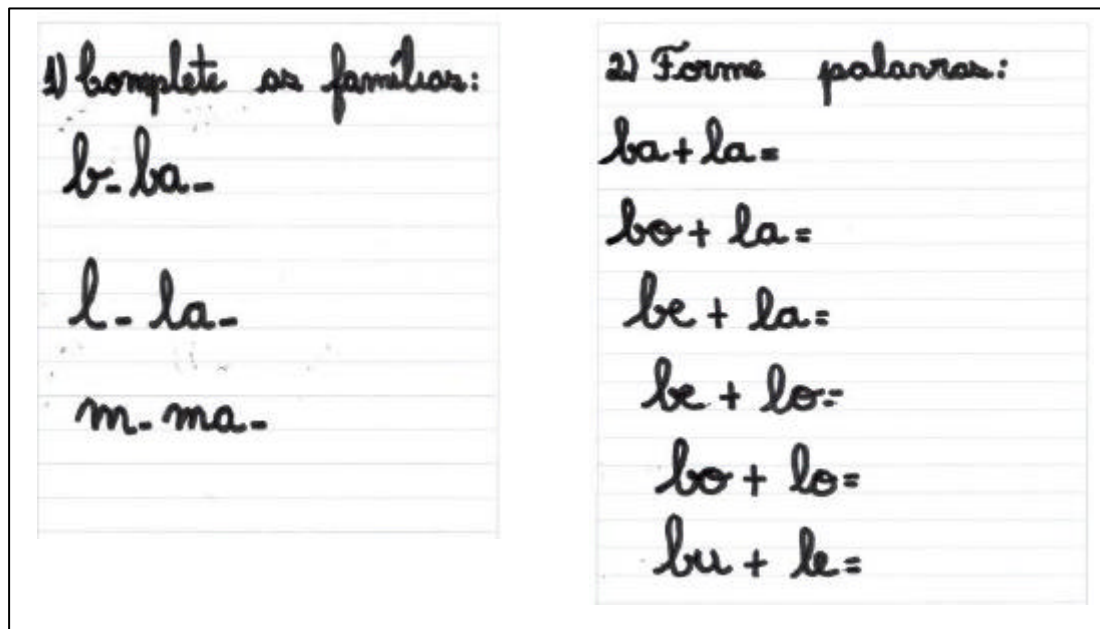 1) Complete as famílias:
b- ba-
l- la-
m- ma-
2) Forme palavras:
ba + la =
bo + la =
be + la =
be + lo =
bo + lo =
bu + le =